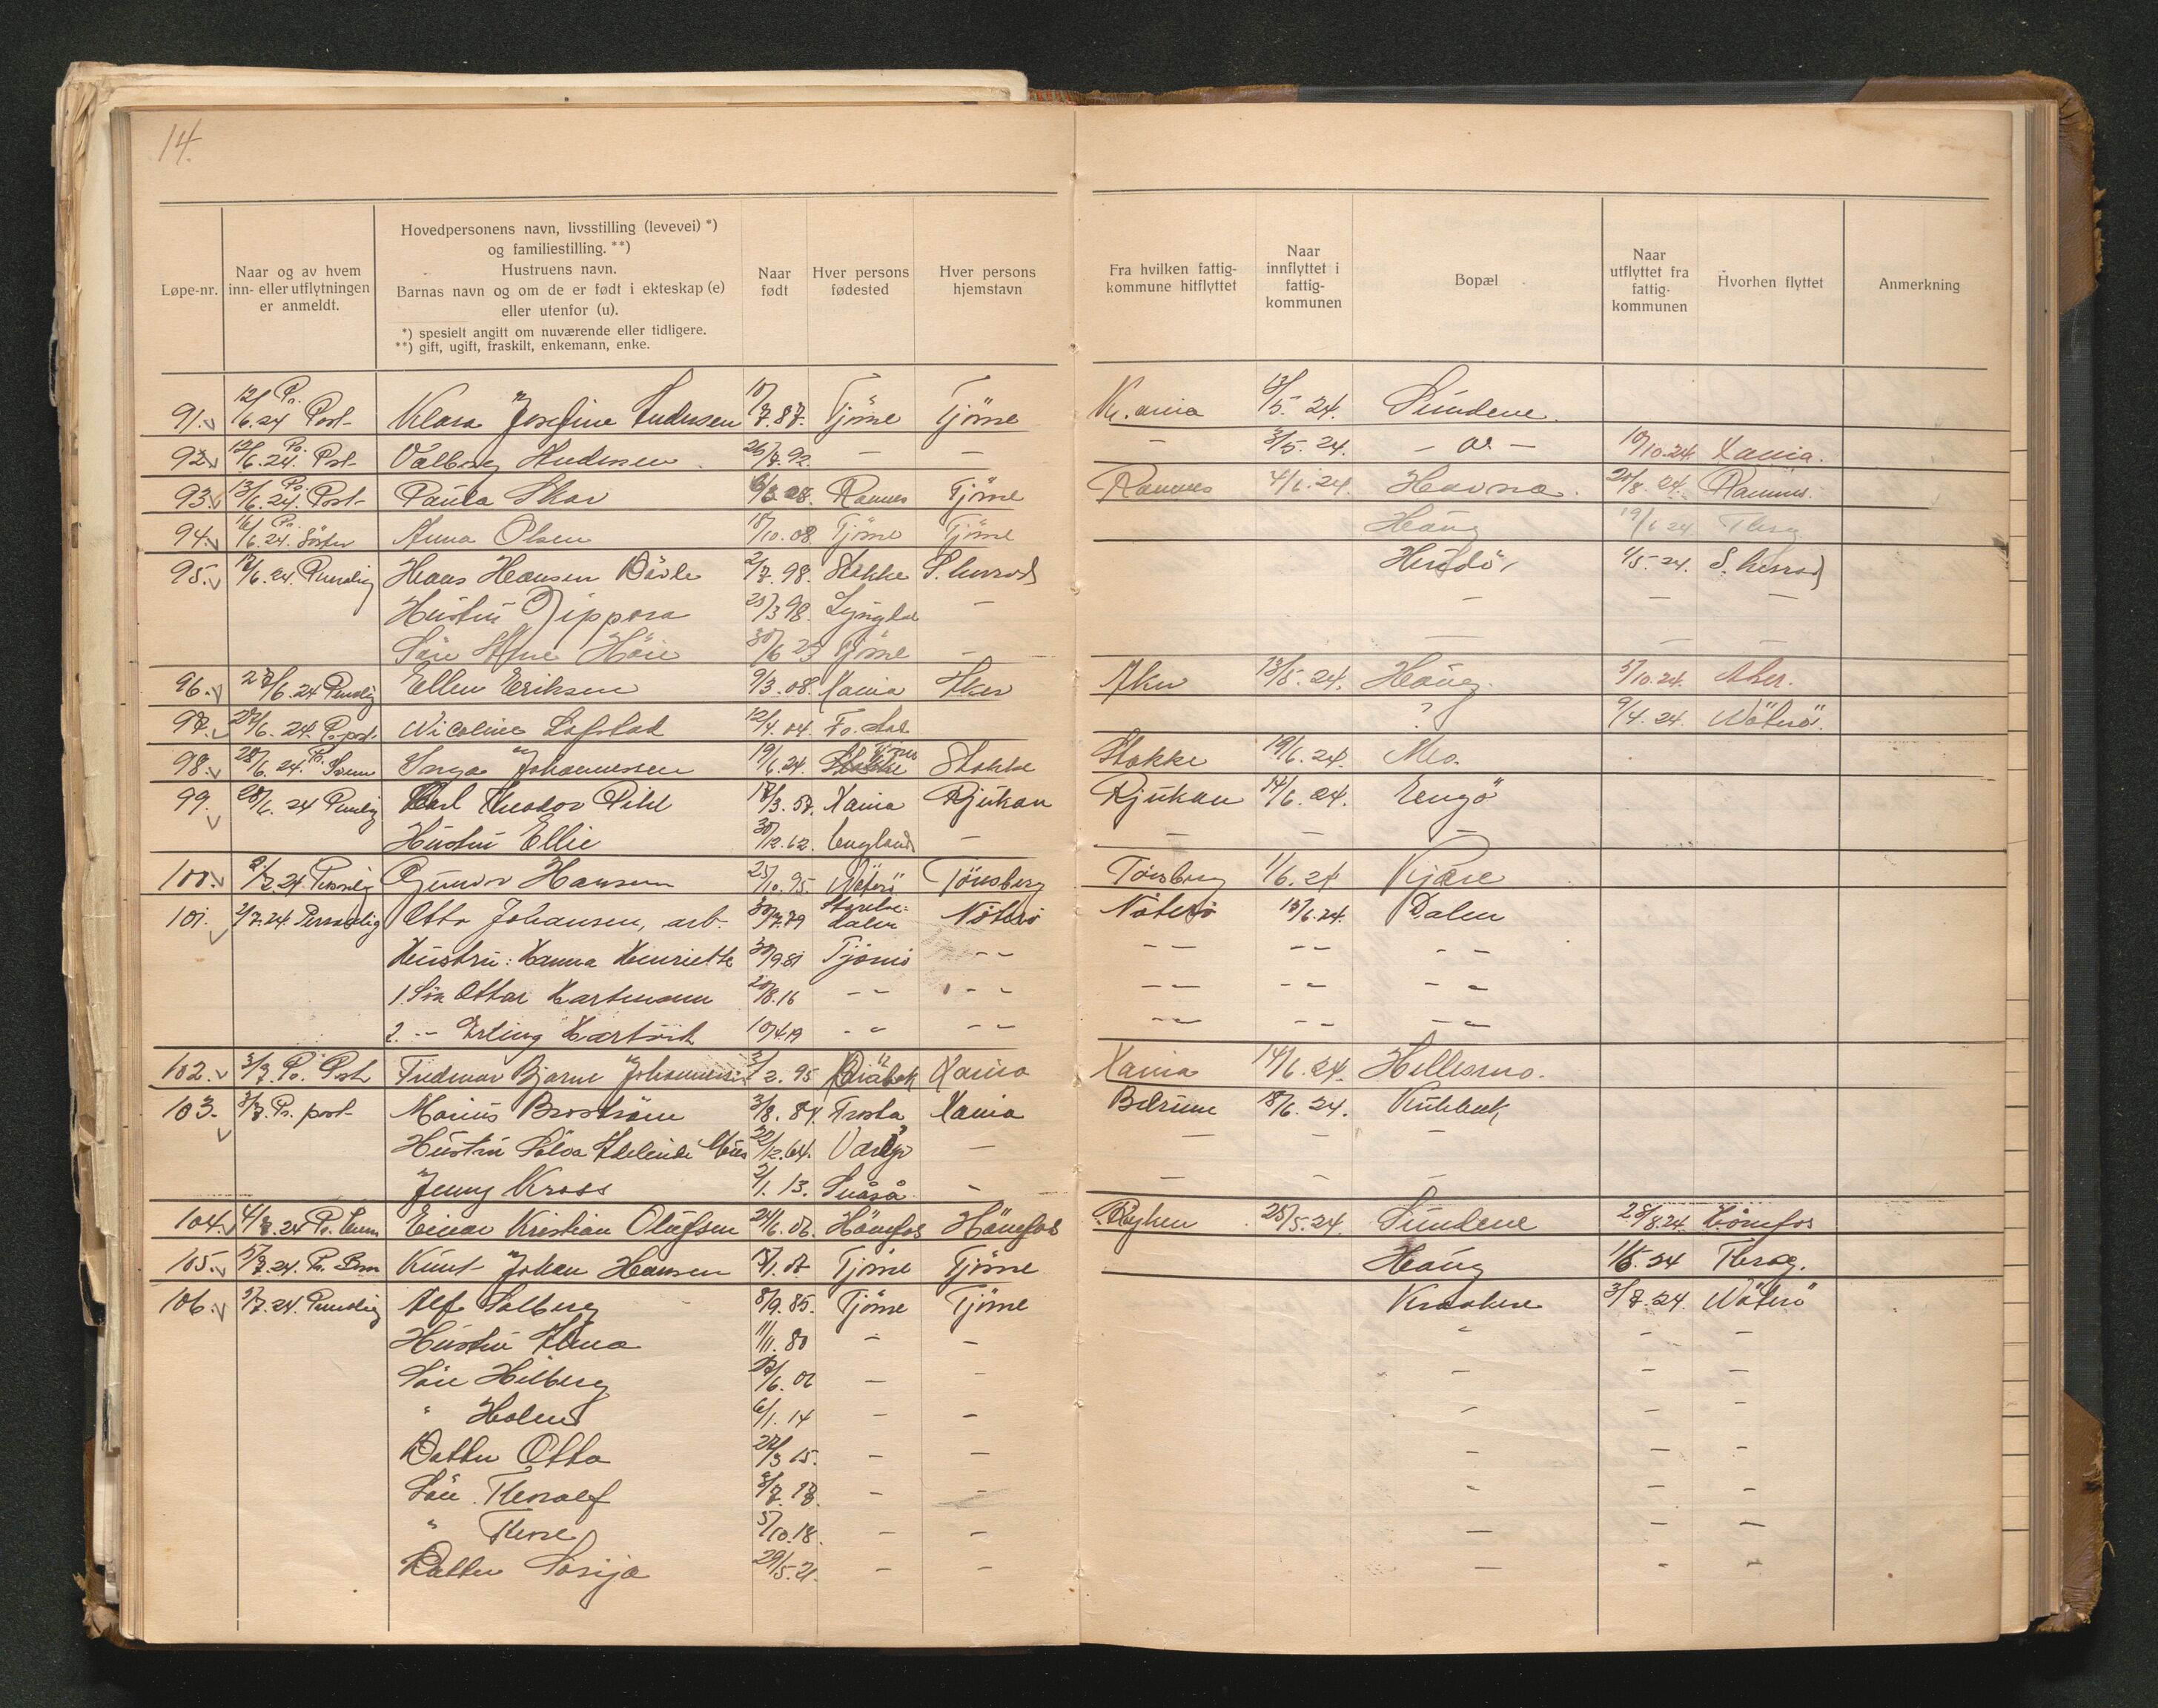 14.
Løpe-nr.
Naar og av hvem inn- eller utflytningen er anmeldt.
Hovedpersonens navn, livsstilling (levevei) *)
og familiestilling. **)
Hustruens navn.
Barnas navn og om de er født i ekteskap (e)
eller utenfor (u).
*) spesielt angitt om nuværende eller tidligere.
**) gift, ugift, fraskilt, enkemann, enke.
Naar født
Hver persons fødested
Hver persons hjemstavn
Fra hvilken fattig-kommune hitflyttet
Naar innflyttet i fattig-kommunen
Bopæl
Naar utflyttet fra fattig-kommunen
Hvorhen flyttet
Anmerkning
91. 12/6.24 Pr. Post- Klara Josefine Andersen 10/7.87. Tjöme Tjöme Kr.ania 5. 24. Sundene.
92. 12/6.24. Pr. Pst- Valborg Andersen 26/7.92. — — — 3/5. 24. — 10/10.24 Xania.
93. 13/6.24. Pr. Post- Paula Skav Ramnes Tjöme Ramnes 4/6.24. Havna. 20/8. 24. Ramnes.
94. 16/6.24. Pr. Söster Anna Olsen 10/10.08 Tjöme Tjöme Haug 19/6 24 Tberg
95. 17/6.24. Personlig Hans Hansen 2/7.98. Stokke S.herred Hundö 4/5.24. S.herred
Hustru Zippora 25/3 98. Lyngdal — — — —
Sön Arne 30/6 23 Tjöme — — — —
96. 27/6.24 Personlig Ellen Eriksen 9/3.08. Xania Aker Aker 13/5. 24. Haug. 5/10.24. Aker.
97. 27/6. 24. P. pst. Nicoline Lofstad 12/4.04. ? 9/4.24. Nöterö.
98. 28/6.24. Pr. Inga Johannessen 19/6.24. Tjöme Stokke Stokke 19/6.24. Mo.
99. 28/6. 24 Personlig Karl Theodor Pihl 17/3.57. Xania Rjukan Rjukan 14/6. 24. Engö
Hustru Ellie 30/12.62. England — — — —
100. 2/7.24. Personlig Gunvor Hansen 25/10.95. Nöterö Tönsberg Tönsberg 1/6.24 Kjære
101. 2/7.24. Personlig Otto Johansen, arb. 30/7.79 Nöterö Nöterö 13/6.24. Dalen
Hustru: Hanna Henriette 30/9 81 Tjömö - - - - - - - -
1. Sön Ottar 20/8.16 - - - - - - - - - -
2. -- Erling 10/4.19 - - - - - - - - - -
102. 3/7. Pr. Post Fredmar Bjarne Johannessen 3/2.95 Dröbak Xania Xania 14/6.24. Hellesmo.
103. 3/7. Pr. post- Marius Broström 3/8.84. Trosta Xania Bærum 18/6.24.
Hustru 22/12.64. — — — —
Jenny Kross 2/1. 13. Snåså — — — —
104. 4/7.24 Pr. Einar Kristian Olufsen 24/6.06. Hönefos Hönefos Röyken 25/5.24. Sundene 28/8.24. Hönefos
105. 5/7.24. Pr. Knut Johan Hansen Tjöme Tjöme Haug 1/5. 24 Tberg.
106. 5/7.24. Personlig Alf Solberg 8/9.85. Tjöme Tjöme 3/7.24. Nöterö
Hustru Anna 11/11.80 — — - — —
Sön Hilberg 6. 06 — — - — —
" 6/1.14 — — - — —
Datter Otta 27/3 15. — — — — —
Sön Toralf 8/7. 17. — — - — —
" Tore 5/10.18. — — — — —
Datter 29/5.21. — — — - —